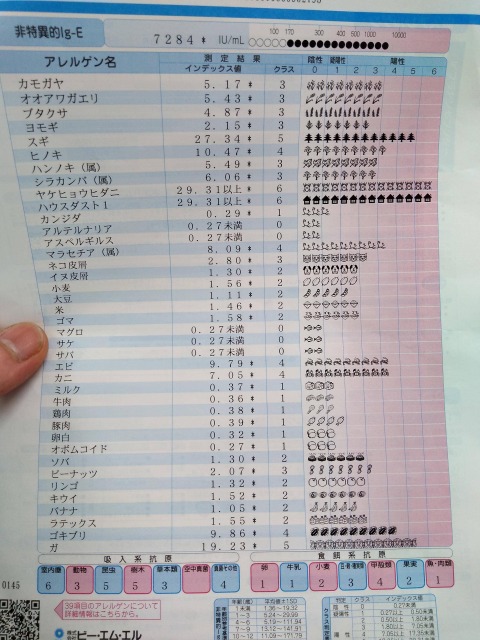 非特異的Ig-E 7284 * IU/mL 100 170 300 400 500 1000 10000
アレルゲン名 測定結果 陰性 疑陽性 陽性
インデックス値 クラス 0 1 2 3 4 5 6
カモガヤ 5.17 * 3
オオアワガエリ 5.43 * 3
ブタクサ 4.87 * 3
ヨモギ 2.15 * 3
スギ 27.34 * 5
ヒノキ 10.47 * 4
ハンノキ(属) 5.49 * 3
シラカンバ(属) 6.06 * 3
ヤケヒョウヒダニ 29.31以上* 6
ハウスダスト1 29.31以上* 6
カンジダ 0.29 * 1
アルテルナリア 0.27未満 0
アスペルギルス 0.27未満 0
マラセチア(属) 8.09 * 4
ネコ皮屑 2.80 * 3
イヌ皮屑 1.30 * 2
小麦 1.56 * 2
大豆 1.11 * 2
米 1.46 * 2
ゴマ 1.58 * 2
マグロ 0.27未満 0
サケ 0.27未満 0
サバ 0.27未満 0
エビ 9.79 * 4
カニ 7.05 * 4
ミルク 0.37 * 1
牛肉 0.36 * 1
鶏肉 0.38 * 1
豚肉 0.39 * 1
卵白 0.32 * 1
オボムコイド 0.27 * 1
ソバ 1.30 * 2
ピーナッツ 2.07 * 3
リンゴ 1.32 * 2
キウイ 1.52 * 2
バナナ 1.05 * 2
ラテックス 1.55 * 2
ゴキブリ 9.86 * 4
ガ 19.23 * 5
吸入系抗原 食餌系抗原
室内塵 動物 昆虫 樹木 草本類 空中真菌 真菌その他 卵 牛乳 小麦 豆・穀・種実類 甲殻類 果実 魚・肉類
6 3 5 5 3 1 4 1 1 2 3 4 2 1
0145
39項目のアレルゲンについて
詳細情報はこちらから。
ビー・エム・エル
年齢(歳) 平均値±1SD
1未満 1.36~19.32
1~3 5.24~29.99
4~6 5.19~111.94
判定 クラス インデックス値
陰性 0 0.27未満
疑陽性 1